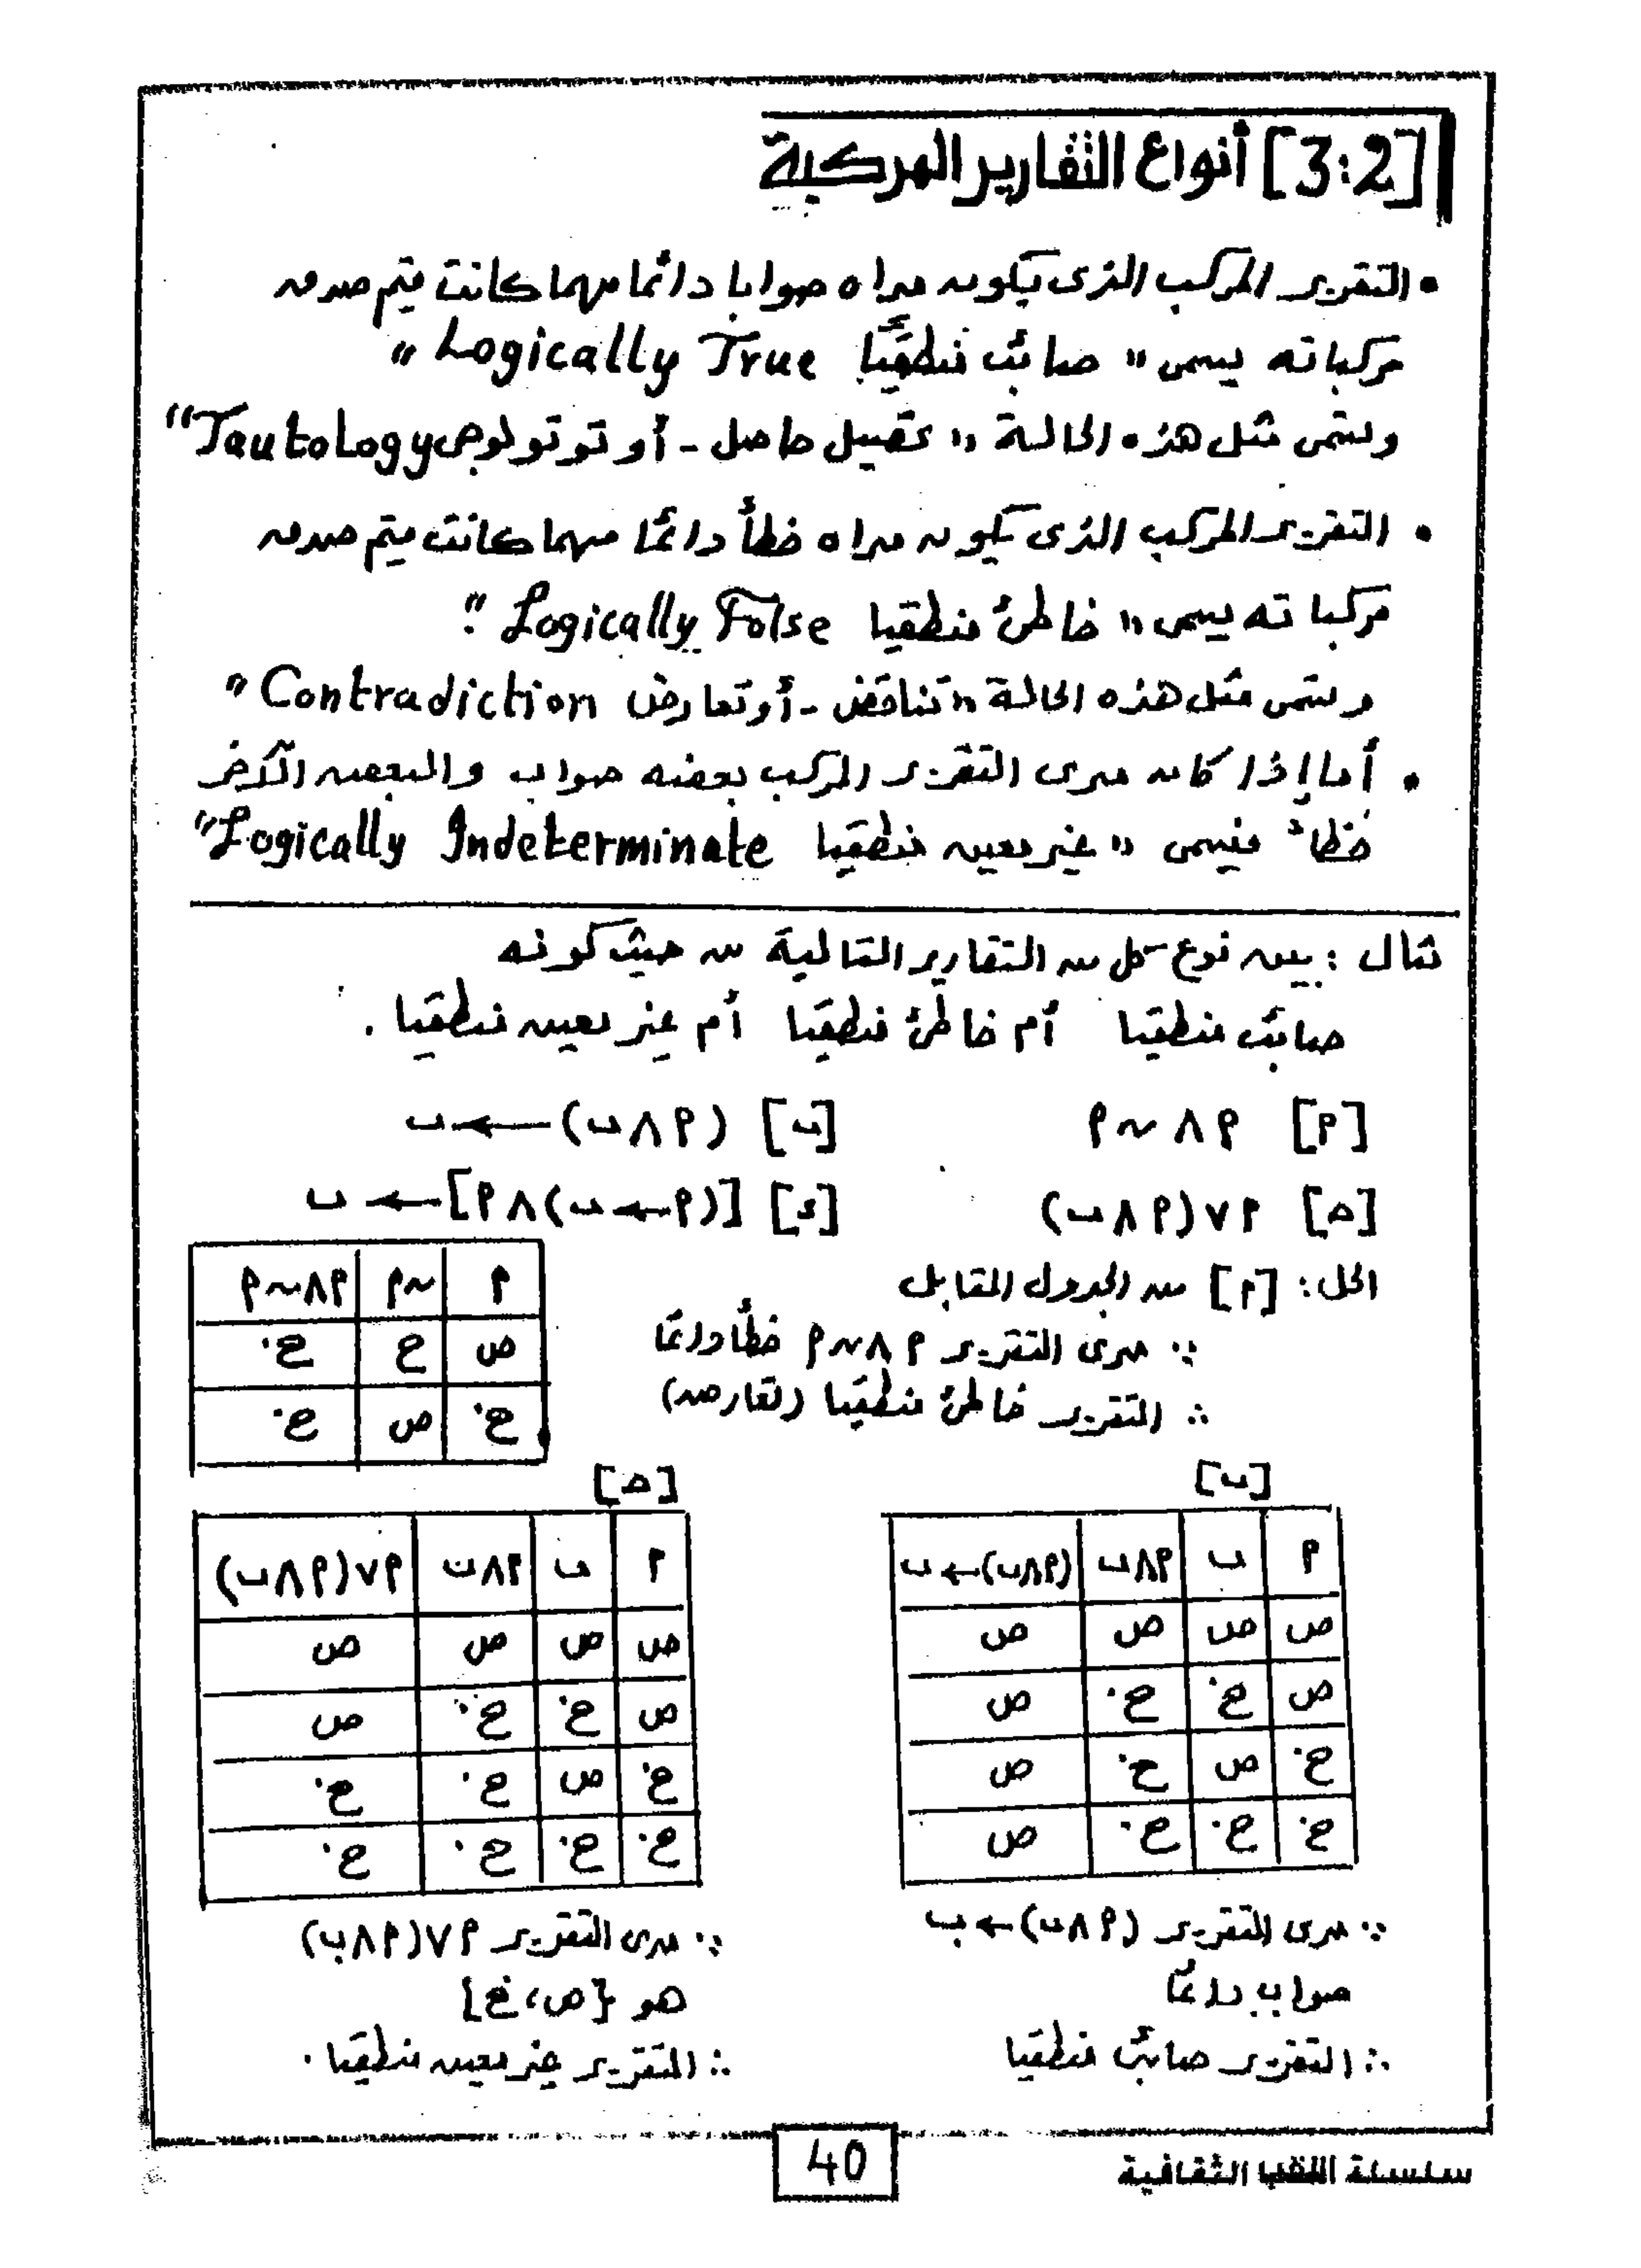 [3:2] أنواع التقارير المركبة
• التقرير المركب الذى يكون مداه صوابا دائما مهما كانت قيم صدق
مركباته يسمى " صائب منطقيًا Logically True "
وتسمى مثل هذه الحالة " تحصيل حاصل - أو توتولوجى Tautology "
• التقرير المركب الذى يكون مداه خطأ دائما مهما كانت قيم صدق
مركباته يسمى " خاطئ منطقيا Logically False ".
وتسمى مثل هذه الحالة " تناقض - أو تعارض Contradiction "
• أما إذا كان مدى التقرير المركب بعضه صواب والبعض الآخر
خطأ فيسمى " غير معين منطقيا Logically Indeterminate "
مثال : بين نوع كل من التقارير التالية من حيث كونه
صائب منطقيا أم خاطئ منطقيا أم غير معين منطقيا .
[م] م ∧ ~م [ب] (م ∧ ب) ← ب
[حـ] م ∨ (م ∧ ب) [د] [(م ← ب) ∧ م] ← ب
الحل : [م] من الجدول المقابل
∵ مدى التقرير م ∧ ~م خطأ دائما
∴ التقرير خاطئ منطقيا (تعارض)
م ~م م ∧ ~م
ص خ خ
خ ص خ
[ب]
م ب م ∧ ب (م ∧ ب) ← ب
ص ص ص ص
ص خ خ ص
خ ص خ ص
خ خ خ ص
∵ مدى التقرير (م ∧ ب) ← ب
صواب دائما
∴ التقرير صائب منطقيا
[حـ]
م ب م ∧ ب م ∨ (م ∧ ب)
ص ص ص ص
ص خ خ ص
خ ص خ خ
خ خ خ خ
∵ مدى التقرير م ∨ (م ∧ ب)
هو {ص ، خ}
∴ التقرير غير معين منطقيا .
40
سلسلة الثقافية